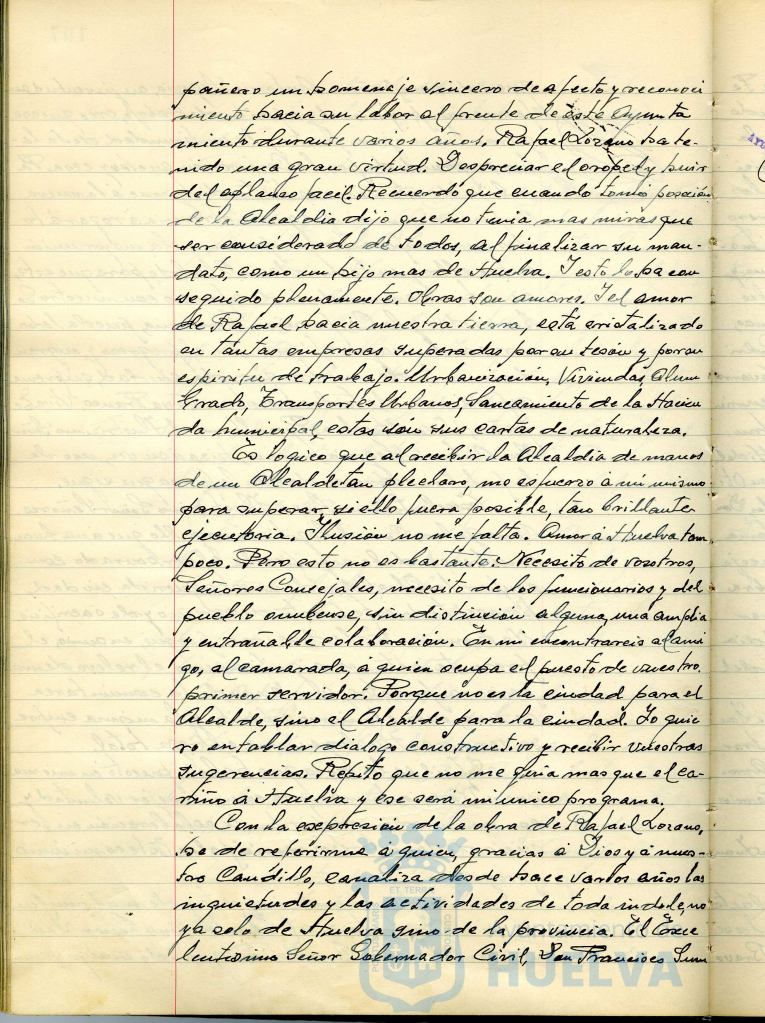 pañero un homenaje sincero de afecto y reconoci
miento hacia su labor al frente de este Ayunta
miento durante varios años. Rafael Lozano ha te-
nido una gran virtud. Despreciar el oropel y huir
del aplauso facil. Recuerdo que cuando tomó posesión
de la Alcaldia dijo que no tenia mas miras que
ser considerado de todos, al finalizar su man-
dato, como un hijo mas de Huelva. Y esto lo ha con
seguido plenamente. Obras son amores. Y el amor
de Rafael hacia nuestra tierra, está cristalizado
en tantas empresas superadas por su tesón y por su
espiritu de trabajo. Urbanización, Viviendas, Alum
brado, Transportes Urbanos, Saneamiento de la Hacien
da Municipal, estas son sus cartas de naturaleza.
Es logico que al recibir la Alcaldia de manos
de un Alcalde tan preclaro, me esfuerzo á mi mismo
para superar, si ello fuera posible, tan brillante
ejecutoria. Ilusión no me falta. Amor á Huelva tam
poco. Pero esto no es bastante. Necesito de vosotros,
Señores Concejales, necesito de los funcionarios y del
pueblo onubense, sin distinción alguna, una amplia
y entrañable colaboración. En mi encontrareis al ami
go, al camarada, a quien ocupa el puesto de vuestro
primer servidor. Porque no es la ciudad para el
Alcalde, sino el Alcalde para la ciudad. Yo quie
ro entablar dialogo constructivo y recibir vuestras
sugerencias. Repito que no me guia mas que el ca-
riño á Huelva y ese será mi unico programa.
Con la expresión de la obra de Rafael Lozano,
he de referirme á quien, gracias á Dios y á nues-
tro Caudillo, canaliza desde hace varios años las
inquietudes y las actividades de toda indole, no
ya solo de Huelva sino de la provincia. El Exce
lentisimo Señor Gobernador Civil, Don Francisco Sum
HUELVA